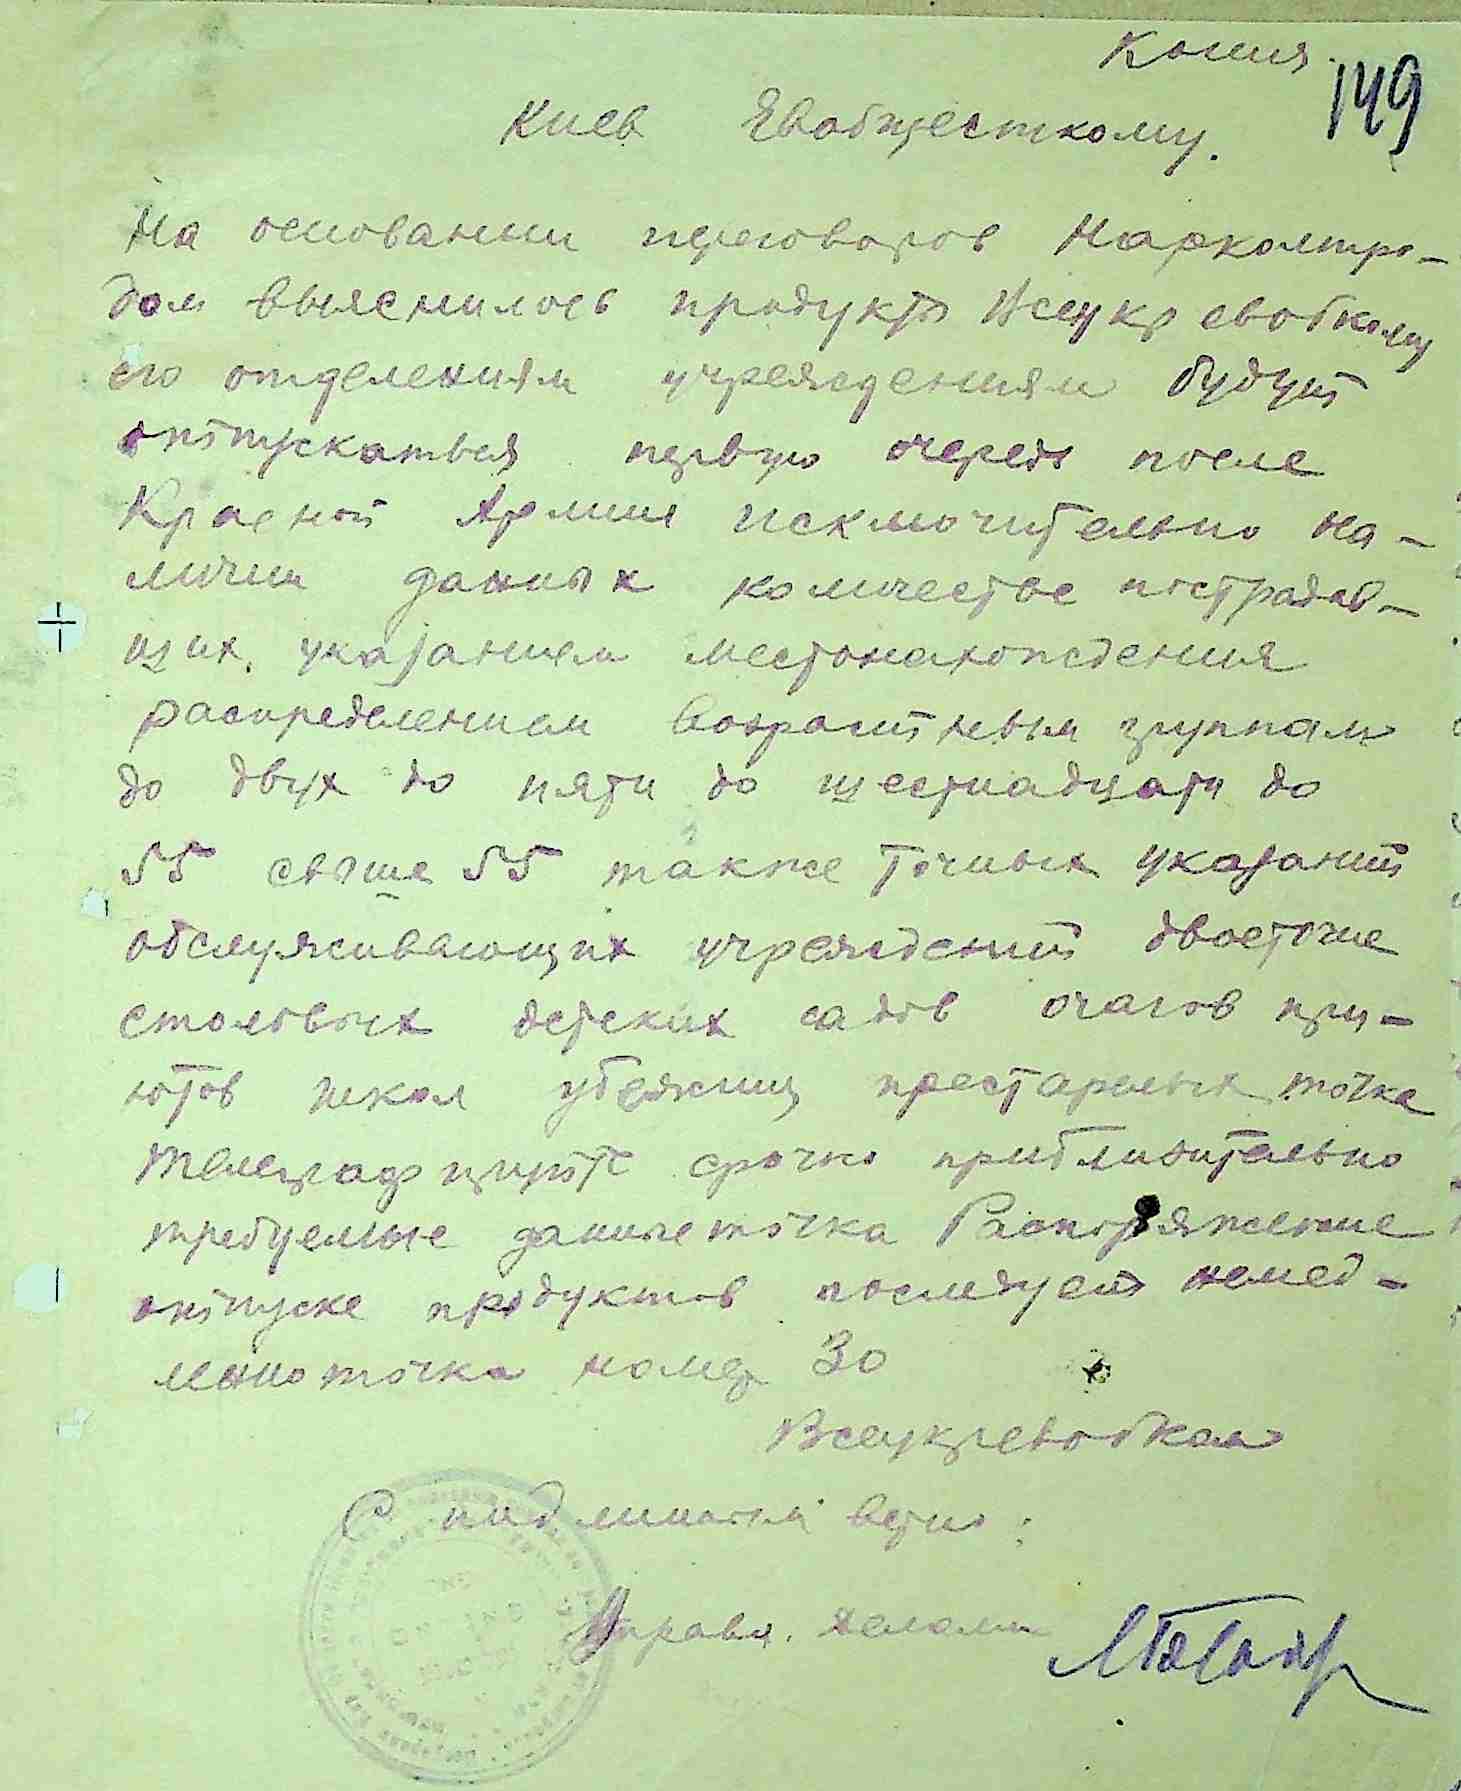 Копия.
149
Киев Евобщесткому.
На основании переговоров Наркомпро-
дом выяснилось продукты Всеукревобкому
его отделениям учреждениям будут
отпускаться первую очередь после
Красной Армии исключительно на-
личии данных количестве пострадав-
ших, указанием местонахождения
распределением возрастным группам
до двух до пяти до шестнадцати до
55 свыше 55 также точных указаний
обслуживающих учреждений двоеточие
столовых детских садов очагов при-
ютов школ убежищ престарелых точка
Телеграфируйте срочно приблизительно
требуемые данные точка Распоряжение
отпуске продуктов последует немед-
ленно точка номер 30
Всеукревобком
С подлинным верно:
Управл. делами